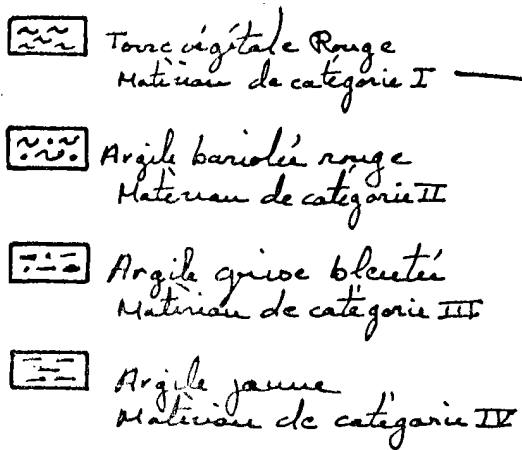 Terre végétale Rouge
Matériau de catégorie I
Argile bariolée rouge
Matériau de catégorie II
Argile grise bleutée
Matériau de catégorie III
Argile jaune
Matériau de catégorie IV